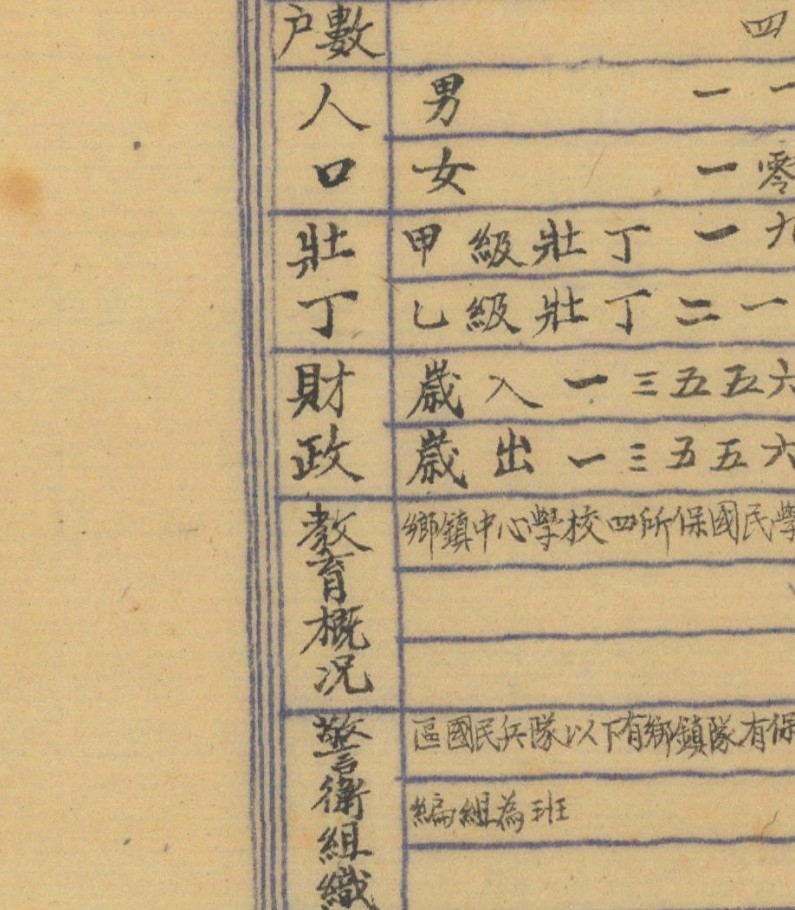 户數 四
人口 男 一一
女 一零
壯丁 甲級壯丁一九
乙級壯丁二一
財政 歲入一三五五六
歲出一三五五六
教育概況 鄉鎮中心學校四所保國民學
警衛組織 區國民兵隊以下有鄉鎮隊有保
編組為班